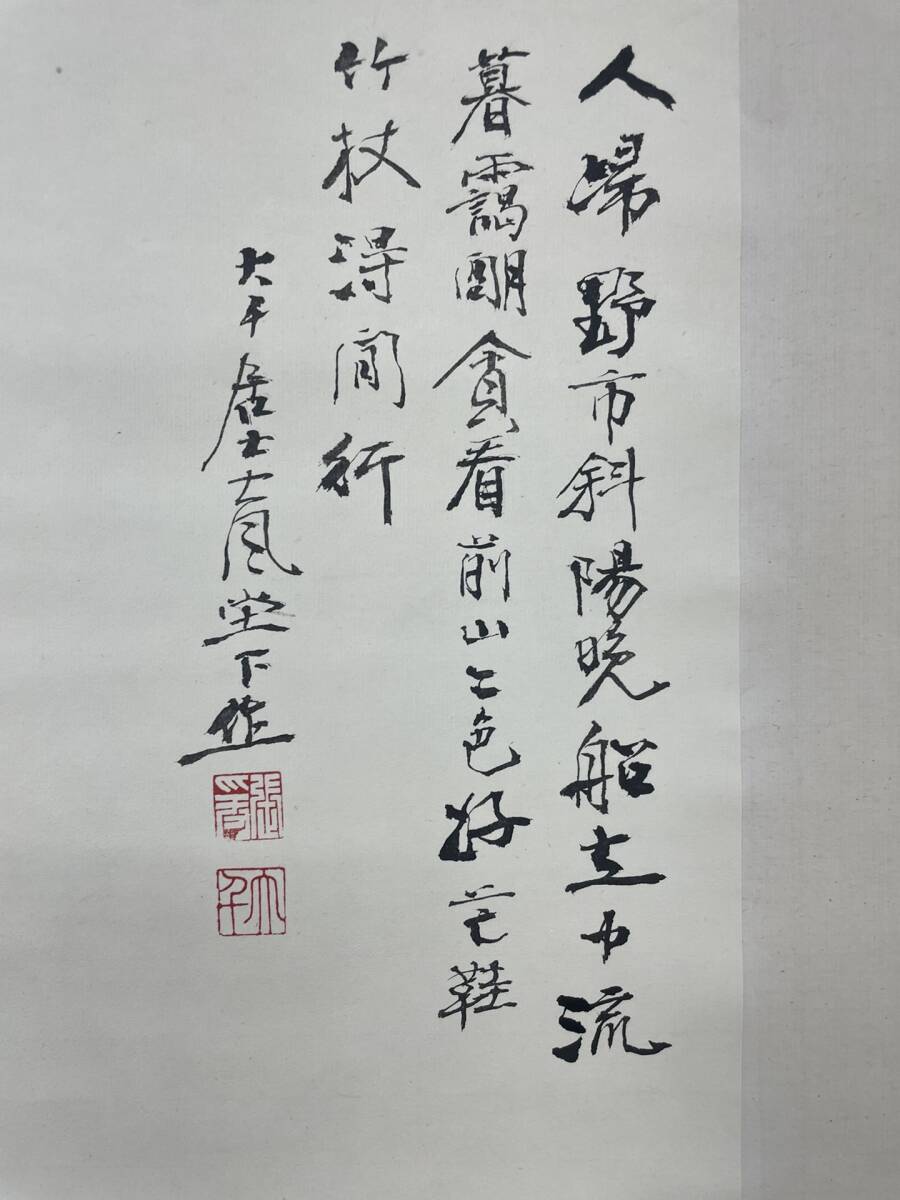 人歸野市斜陽晚船在中流
暮靄朙貪看前山山色好芒鞵
竹杖得閒行
大千居士大風堂下作
張爰
大千